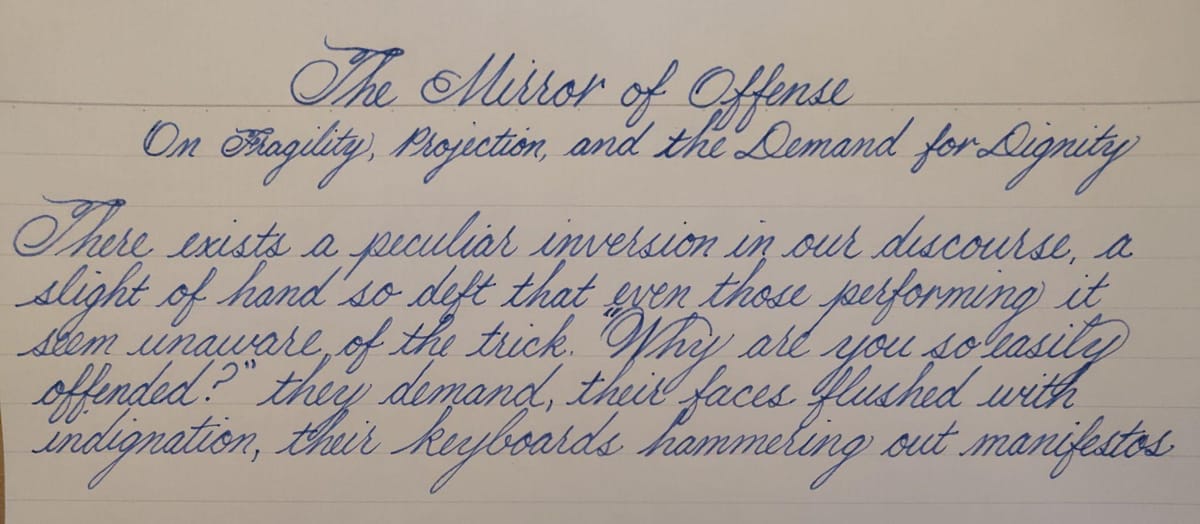 The Mirror of Offense
On Fragility, Projection, and the Demand for Dignity
There exists a peculiar inversion in our discourse, a
slight of hand so deft that even those performing it
seem unaware of the trick. "Why are you so easily
offended?" they demand, their faces flushed with
indignation, their keyboards hammering out manifestos